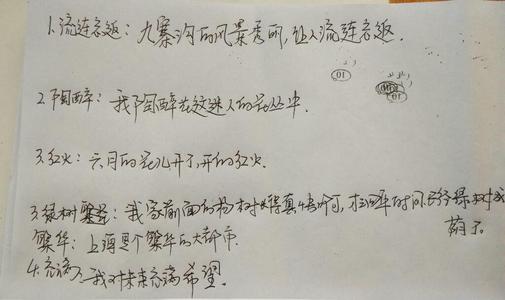 1.流连忘返：九寨沟的风景秀丽，让人流连忘返.
01
01
2.陶醉：我陶醉在这迷人的花丛中.
3.红火：六月的花儿开了，开的红火.
3.绿树成荫：我家前面的杨树长得真快呀，才四年时间已经绿树成
荫了.
繁华：上海是个繁华的大都市.
4.充满：我对未来充满希望.